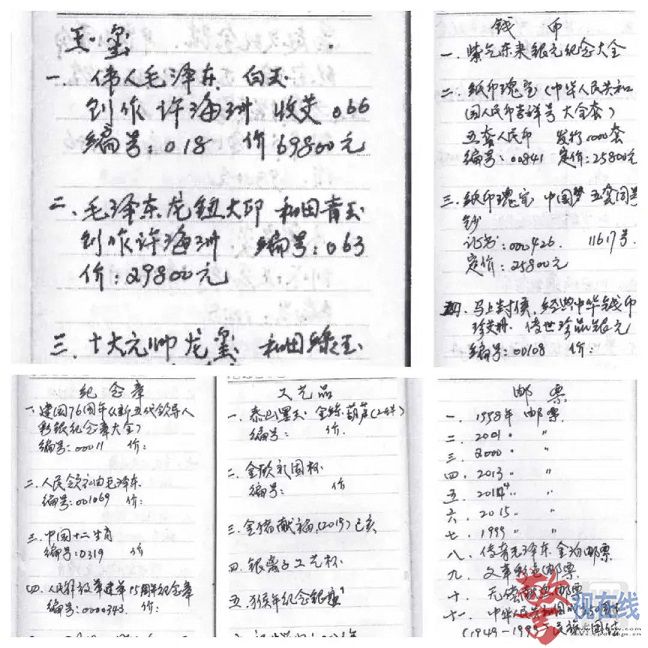 玉玺
一、伟人毛泽东 白玉
创作 许海洲 收艾 066
编号:018 价 69800元
二、毛泽东龙钮大印 和田青玉
创作许海洲 编号:063
价:29800元
三、十大元帅龙玺 和田绿玉
钱币
一、紫气东来银元纪念大全
二、纸币瑰宝(中华人民共和
国人民币吉祥号大全套)
五套人民币 发行1000套
编号:00841 定价:25800元
三、纸币瑰宝 中国梦 五套同号
钞
证书:000426. 11617号.
定价:25800元
四、马上封侯,经典中华钱币
珍藏册、传世珍品银元
编号:00108 价:
纪念章
一、建国76周年(新五代领导人
彩银纪念章大全)
编号:00011 价:
二、人民领袖毛泽东
编号:001069 价:
三、中国十二生肖
编号:0319 价
四、人民解放军建军 周年纪念章
编号:0000343. 价:
工艺品
一、泰山墨玉 葫芦
编号: 价.
二、金 国杯
编号: 价
三、金猪献福,(2019)己亥
四、银离子工艺杯
五、猴年纪念银
邮票
一、1558年 邮票.
二、2001 〃 〃
三、2000 〃 〃
四、2013 〃 〃
五、2014 〃 〃
六、2015 〃 〃
七、1999 〃 〃
八、传奇毛泽东 金箔邮票
九、文革 邮票
十、 邮票
十一、中华人民 50周年
(1949-1999 民族大团结
现在线